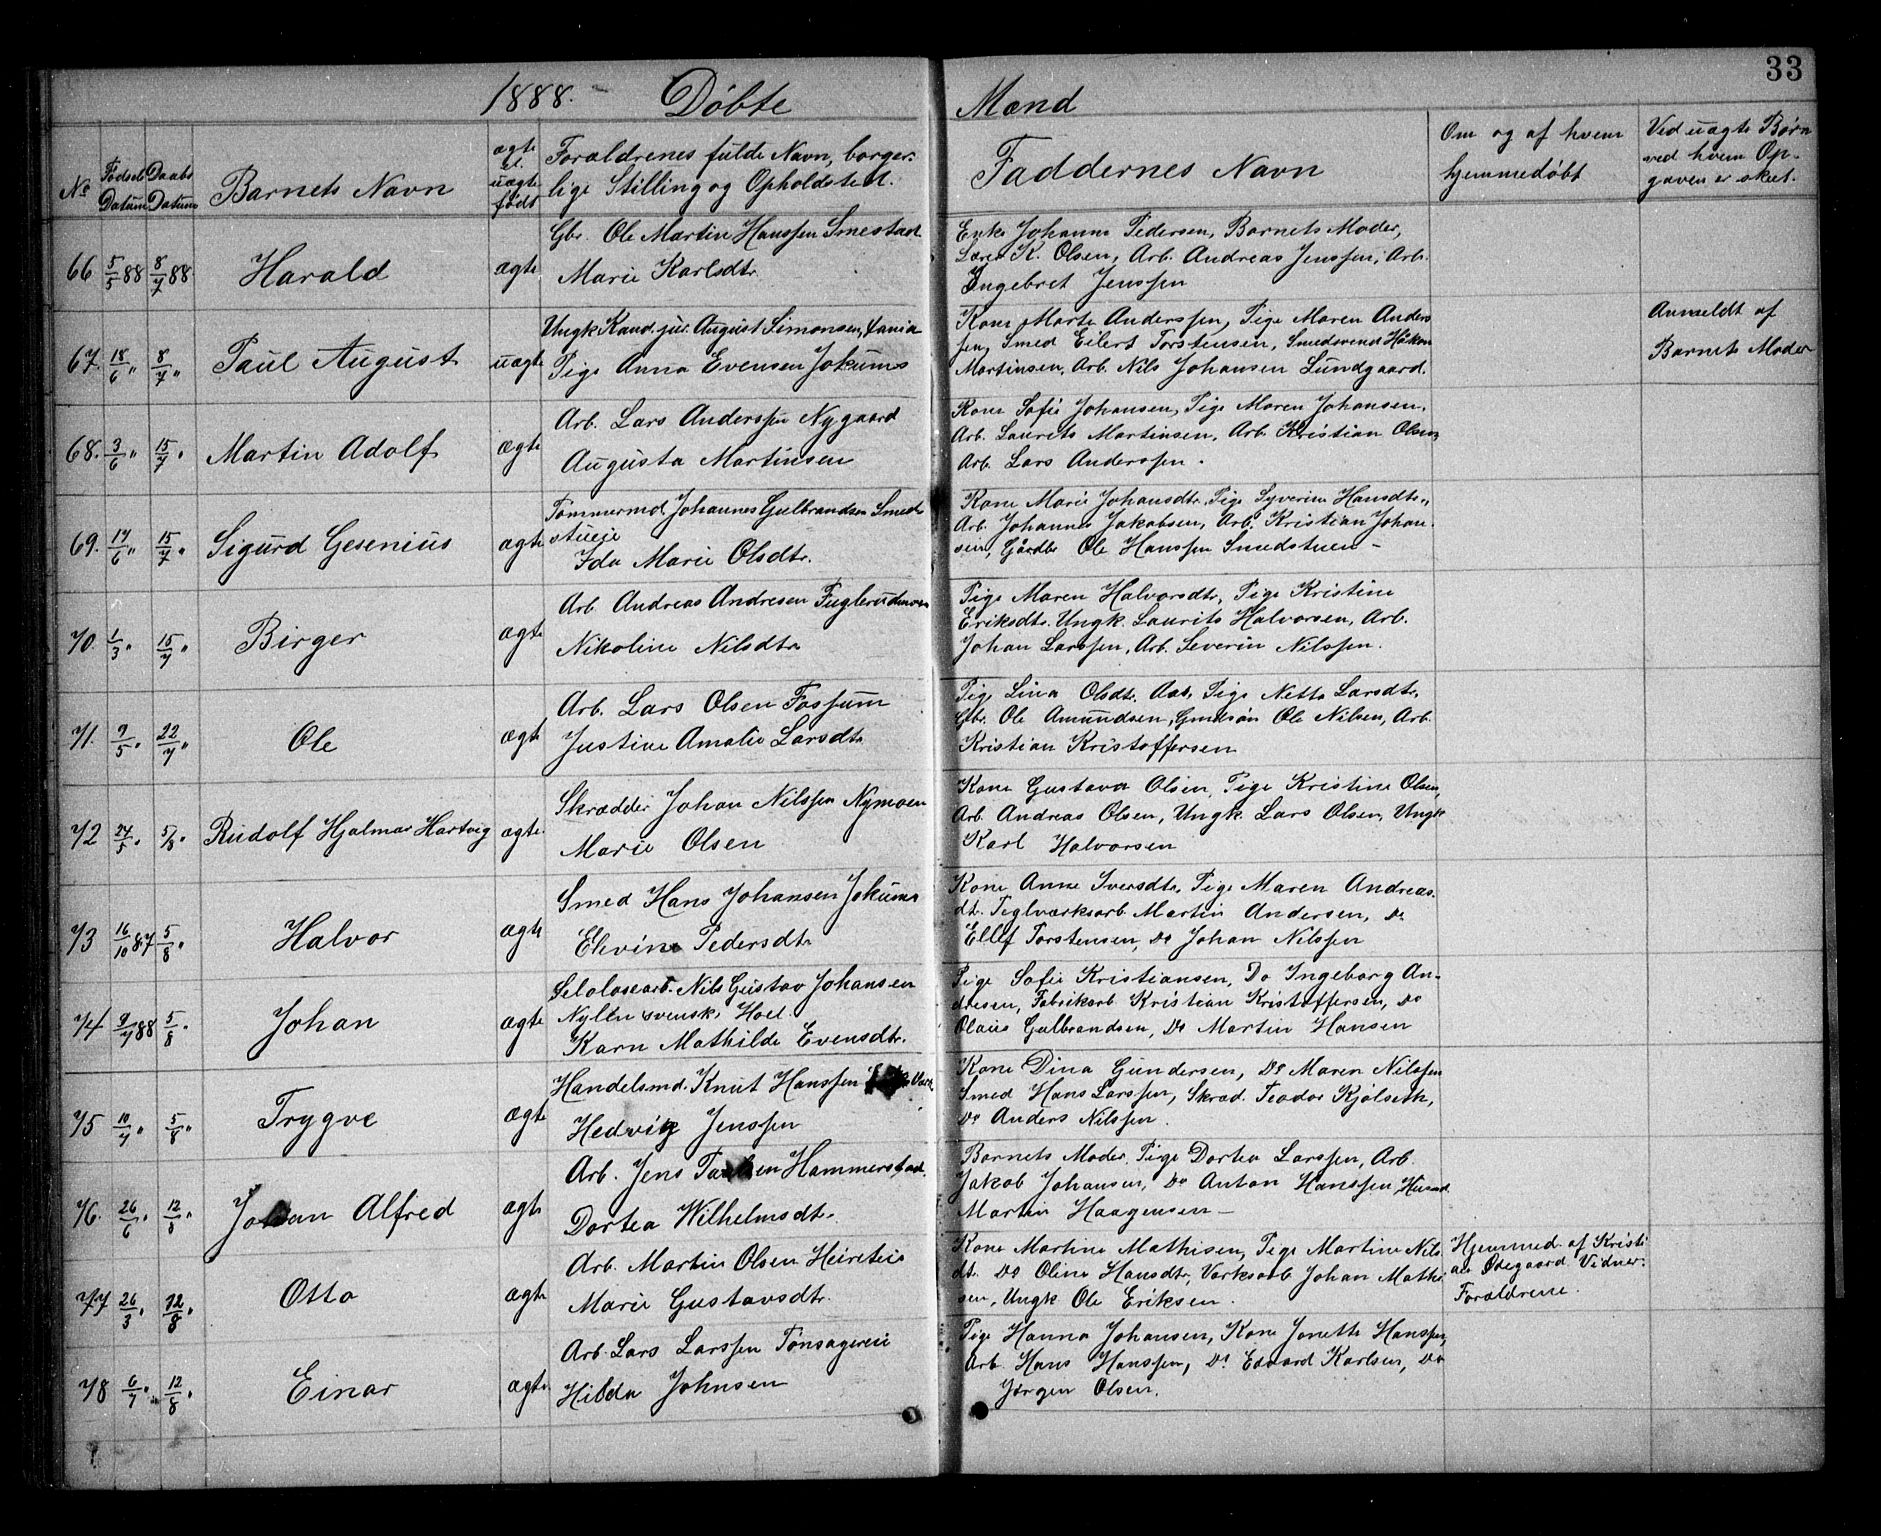 33
1888. Døbte Mænd
No Fødsels Datum Daabs Datum Barnets Navn ægte el. uægte født Forældrenes fulde Navn, borgerlige Stilling og Opholdsted. Faddernes Navn Om og af hvem hjemmedøbt Ved uægte Børn ved hvem Opgaven er skeet.
66 5/5 88 8/7 88 Harald ægte Gbr. Ole Martin Hanssen Smestad
Marie Karlsdtr.
Enke Johanne Pedersen, Barnets Moder,
Lærer K. Olsen, Arb. Andreas Jenssen, Arb.
Ingebret Jenssen
67. 18/6 " 8/7 " Paul August uægte Ungk. Kand. jur. August Simonsen,
Pige Anna Evensen Jokums
Kone Marte Anderssen, Pige Maren Anders
sen, Smed Eilert Torstensen, Smedsvend Håkon
Martinsen, Arb. Nils Johansen Lundgaard.
Anmeldt af
Barnets Moder
68. 3/6 " 15/7 " Martin Adolf ægte Arb. Lars Anderssen Nygaard
Augusta Martinsen
Kone Sofie Johansen, Pige Maren Johansen,
Arb. Laurits Martinsen, Arb. Kristian Olsen,
Arb. Lars Anderssen.
69. 17/6 " 15/7 " Sigurd Gesenius ægte Tømmermd. Johannes Gulbrandsen Smed
stueie
Ida Marie Olsdtr.
Kone Marie Johansdtr. Pige Syverine Hansdtr.,
Arb. Johannes Jakobsen, Arb. Kristian Johan
sen, Gårdbr Ole Hanssen Smedstuen –
70. 1/3 " 15/7 " Birger ægte Arb. Andreas Andresen Fuglerudmoen
Nikoline Nilsdtr
Pige Maren Halvorsdtr, Pige Kristine
Eriksdtr. Ungk. Laurits Halvorsen, Arb.
Johan Larssen, Arb. Severin Nilssen.
71. 9/5 " 22/7 " Ole ægte Arb. Lars Olsen Fossum
Justine Amalie Larsdtr
Pige Lina Olsdtr. Aas, Pige Netta Larsdtr,
Gbr. Ole Amundsen, Gmdsøn Ole Nilsen, Arb.
Kristian Kristoffersen
72 24/5 " 5/8 " Rudolf Hjalmar Hartvig ægte Skrædder Johan Nilssen Nymoen
Marie Olsen
Kone Gustava Olsen, Pige Kristine Olsen,
Arb. Andreas Olsen, Ungk. Lars Olsen, Ungk
Karl Halvorsen
73 16/10 87 5/8 " Halvor ægte Smed Hans Johansen Jokums
Elevine Pedersdtr
Kone Anne Iversdtr, Pige Maren Andreas.
dtr. Teglværksarb Martin Andersen, Do
Ellef Torstensen, Do Johan Nilssen
74 9/7 88 5/8 " Johan ægte Selolosearb. Nils Gustav Johansen
Nylen svensk, Hoel
Karn Mathilde Evensdtr.
Pige Sofie Kristiansen, Do Ingeborg An-
dresen, Fabrikarb Kristian Kristoffersen, Do
Olaus Gulbrandsen, Do Martin Hansen
75 10/7 " 5/8 " Trygve ægte Handelsmd. Knut Hanssen
Hedvig Jenssen
Kone Dina Gundersen, Do Maren Nilssen
Smed Hans Larssen, Skræd. Teodor Kjølseth,
Do Anders Nilssen.
76. 26/6 " 12/8 " Johan Alfred ægte Arb. Jens Paulsen Hammerstad.
Dortea Wilhelmsdtr.
Barnets Moder, Pige Dortea Larssen, Arb.
Jakob Johansen, Do Anton Hanssen, Husmd
Martin Haagensen –
77 26/3 " 12/8 " Otto ægte Arb. Martin Olsen Heireteie
Marie Gustavsdtr.
Kone Martine Mathisen, Pige Martine Nils
dtr. Do Oline Hansdtr, Værksarb Johan Mathi
sen, Ungk Ole Eriksen.
Hjemmed. af Kristi
ane Ødegaard. Vidner:
Forældrene.
78 6/7 " 12/8 " Einar ægte Arb. Lars Larssen Tønsagereie
Hilda Johnsen
Pige Hanna Johansen, Kone Jonette Hanssen,
Arb. Hans Hanssen, Do Edvard Karlsen, Do
Jørgen Olsen.